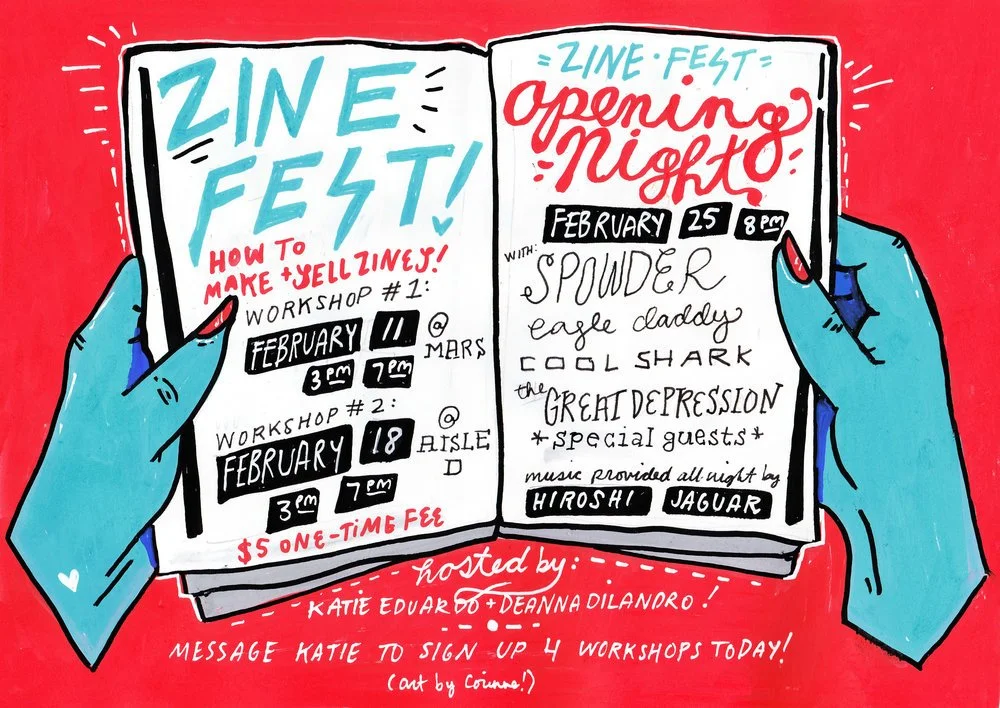 ZINE
FEST!
HOW TO
MAKE + SELL ZINES!
WORKSHOP #1:
FEBRUARY 11 @ MARS
3PM 7PM
WORKSHOP #2:
FEBRUARY 18 @ AISLE D
3PM 7PM
$5 ONE-TIME FEE
ZINE·FEST
opening
Night
FEBRUARY 25 8PM
WITH:
SPOWDER
eagle daddy
COOL SHARK
the GREAT DEPRESSION
*special guests*
music provided all night by
HIROSHI JAGUAR
hosted by:
KATIE EDUARDO + DEANNA DILANDRO!
MESSAGE KATIE TO SIGN UP 4 WORKSHOPS TODAY!
(art by Corinne!)